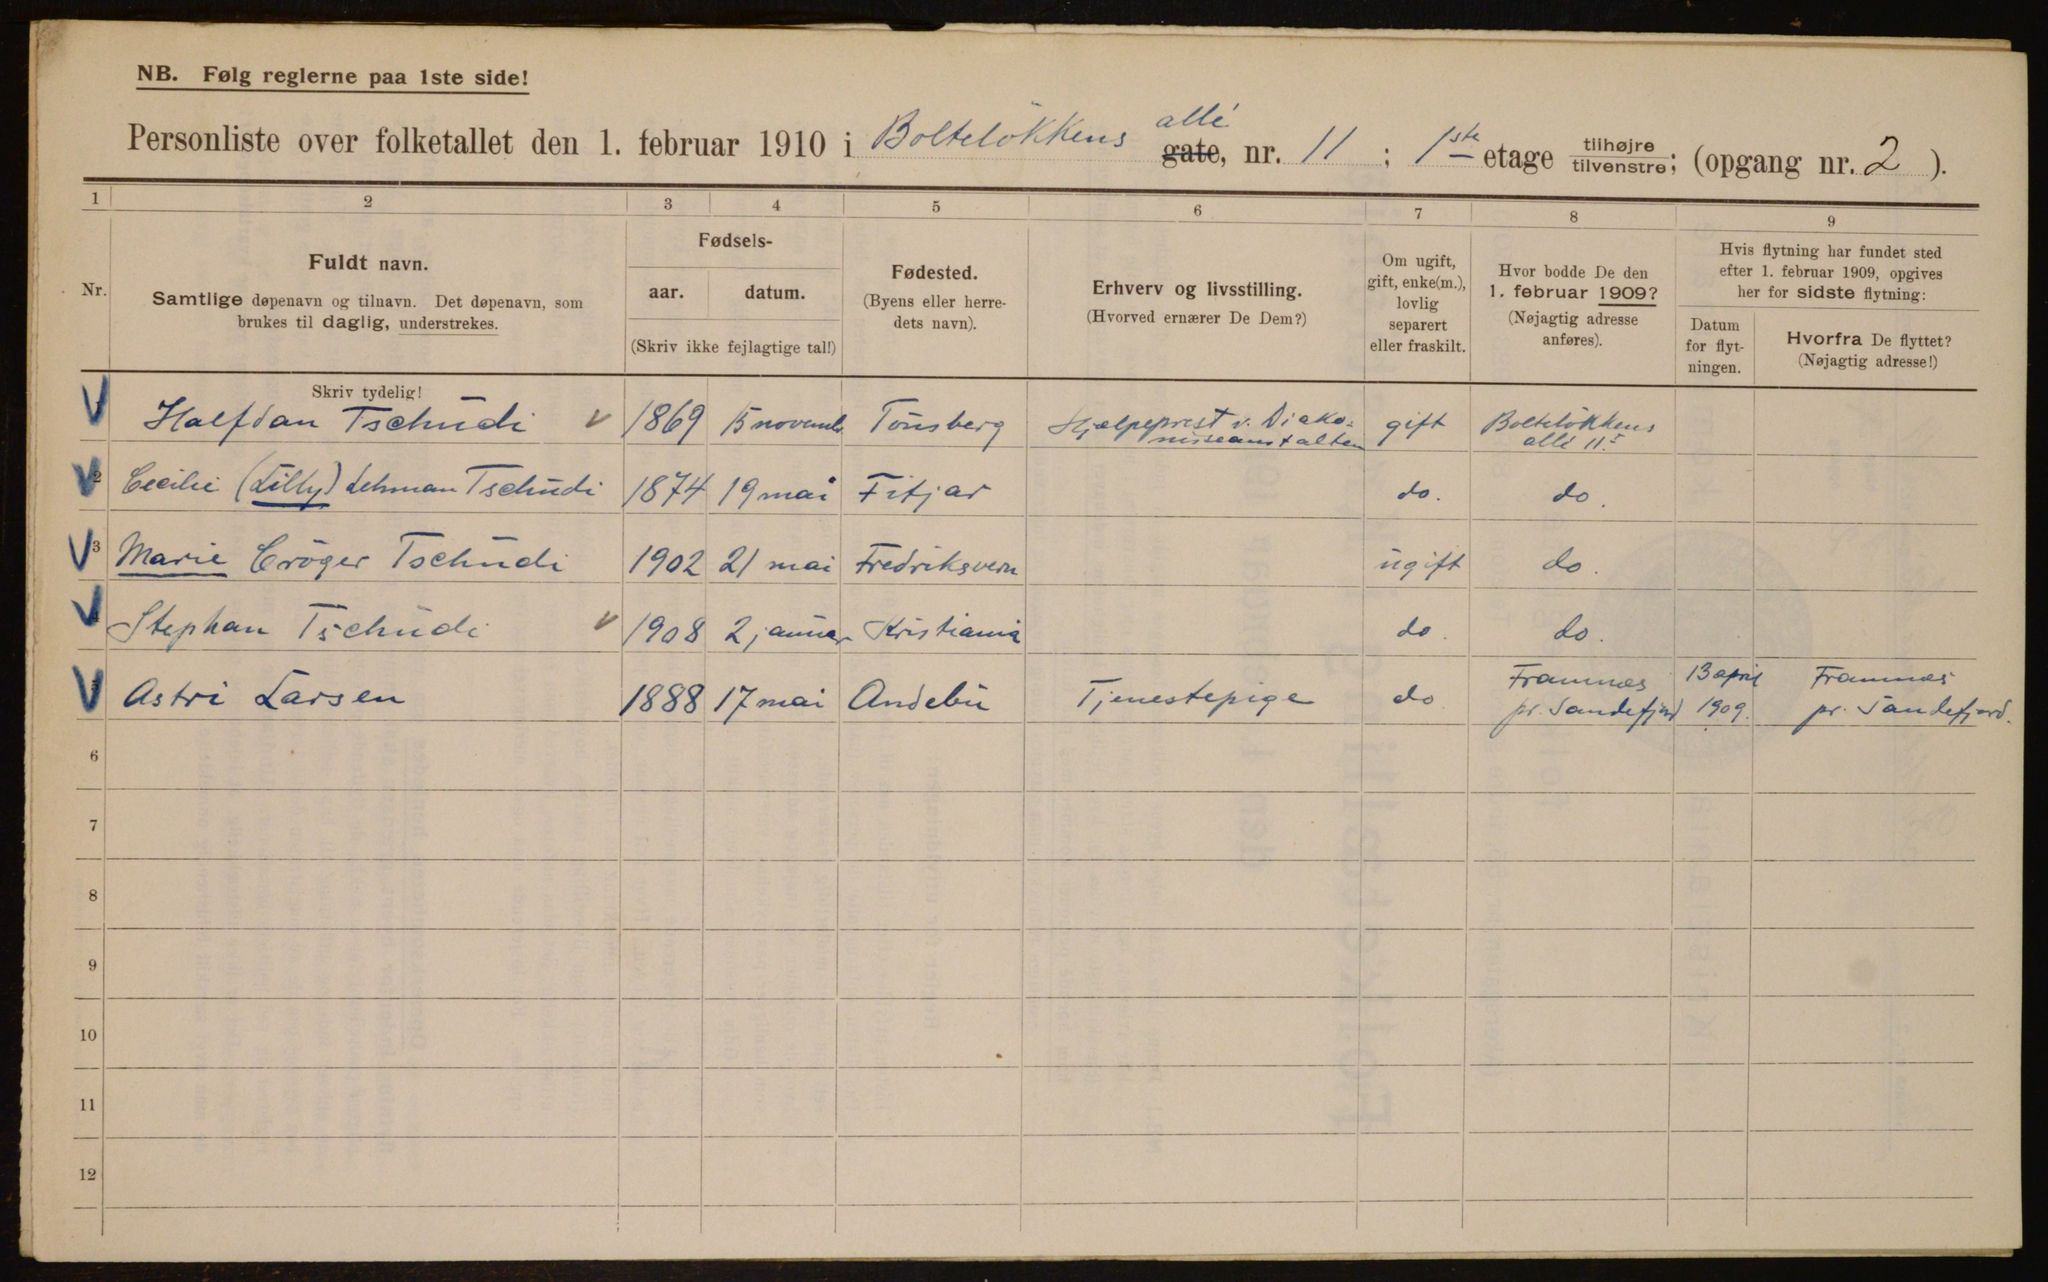 NB. Følg reglerne paa 1ste side!
Personliste over folketallet den 1. februar 1910 i Bolteløkkens allé gate, nr. 11 ; 1ste etage tilhøjre tilvenstre; (opgang nr. 2 ).
1 2 3 4 5 6 7 8 9
Nr.
Fuldt navn.
Samtlige døpenavn og tilnavn. Det døpenavn, som
brukes til daglig, understrekes.
Skriv tydelig!
Fødsels-
aar. datum.
(Skriv ikke fejlagtige tal!)
Fødested.
(Byens eller herre-
dets navn).
Erhverv og livsstilling.
(Hvorved ernærer De Dem?)
Om ugift,
gift, enke(m.),
lovlig
separert
eller fraskilt.
Hvor bodde De den
1. februar 1909?
(Nøjagtig adresse
anføres).
Hvis flytning har fundet sted
efter 1. februar 1909, opgives
her for sidste flytning:
Datum
for flyt-
ningen.
Hvorfra De flyttet?
(Nøjagtig adresse!)
Halfdan Tschudi 1869 15 novembr Tønsberg Hjælpeprest v. Diako- gift Bolteløkkens
nisseanstalten allé 11I
2 Cecilie (Lilly) Lehman Tschudi 1874 19 mai Fitjar do. do.
3 Marie Crøger Tschudi 1902 21 mai Fredriksvern ugift do.
4 Stephan Tschudi 1908 2 januar Kristiania do. do.
5 Astri Larsen 1888 17 mai Andebu Tjenestepige do Framnæs 13 april Framnæs
pr. Sandefjord 1909. pr. Sandefjord.
6
7
8
9
10
11
12